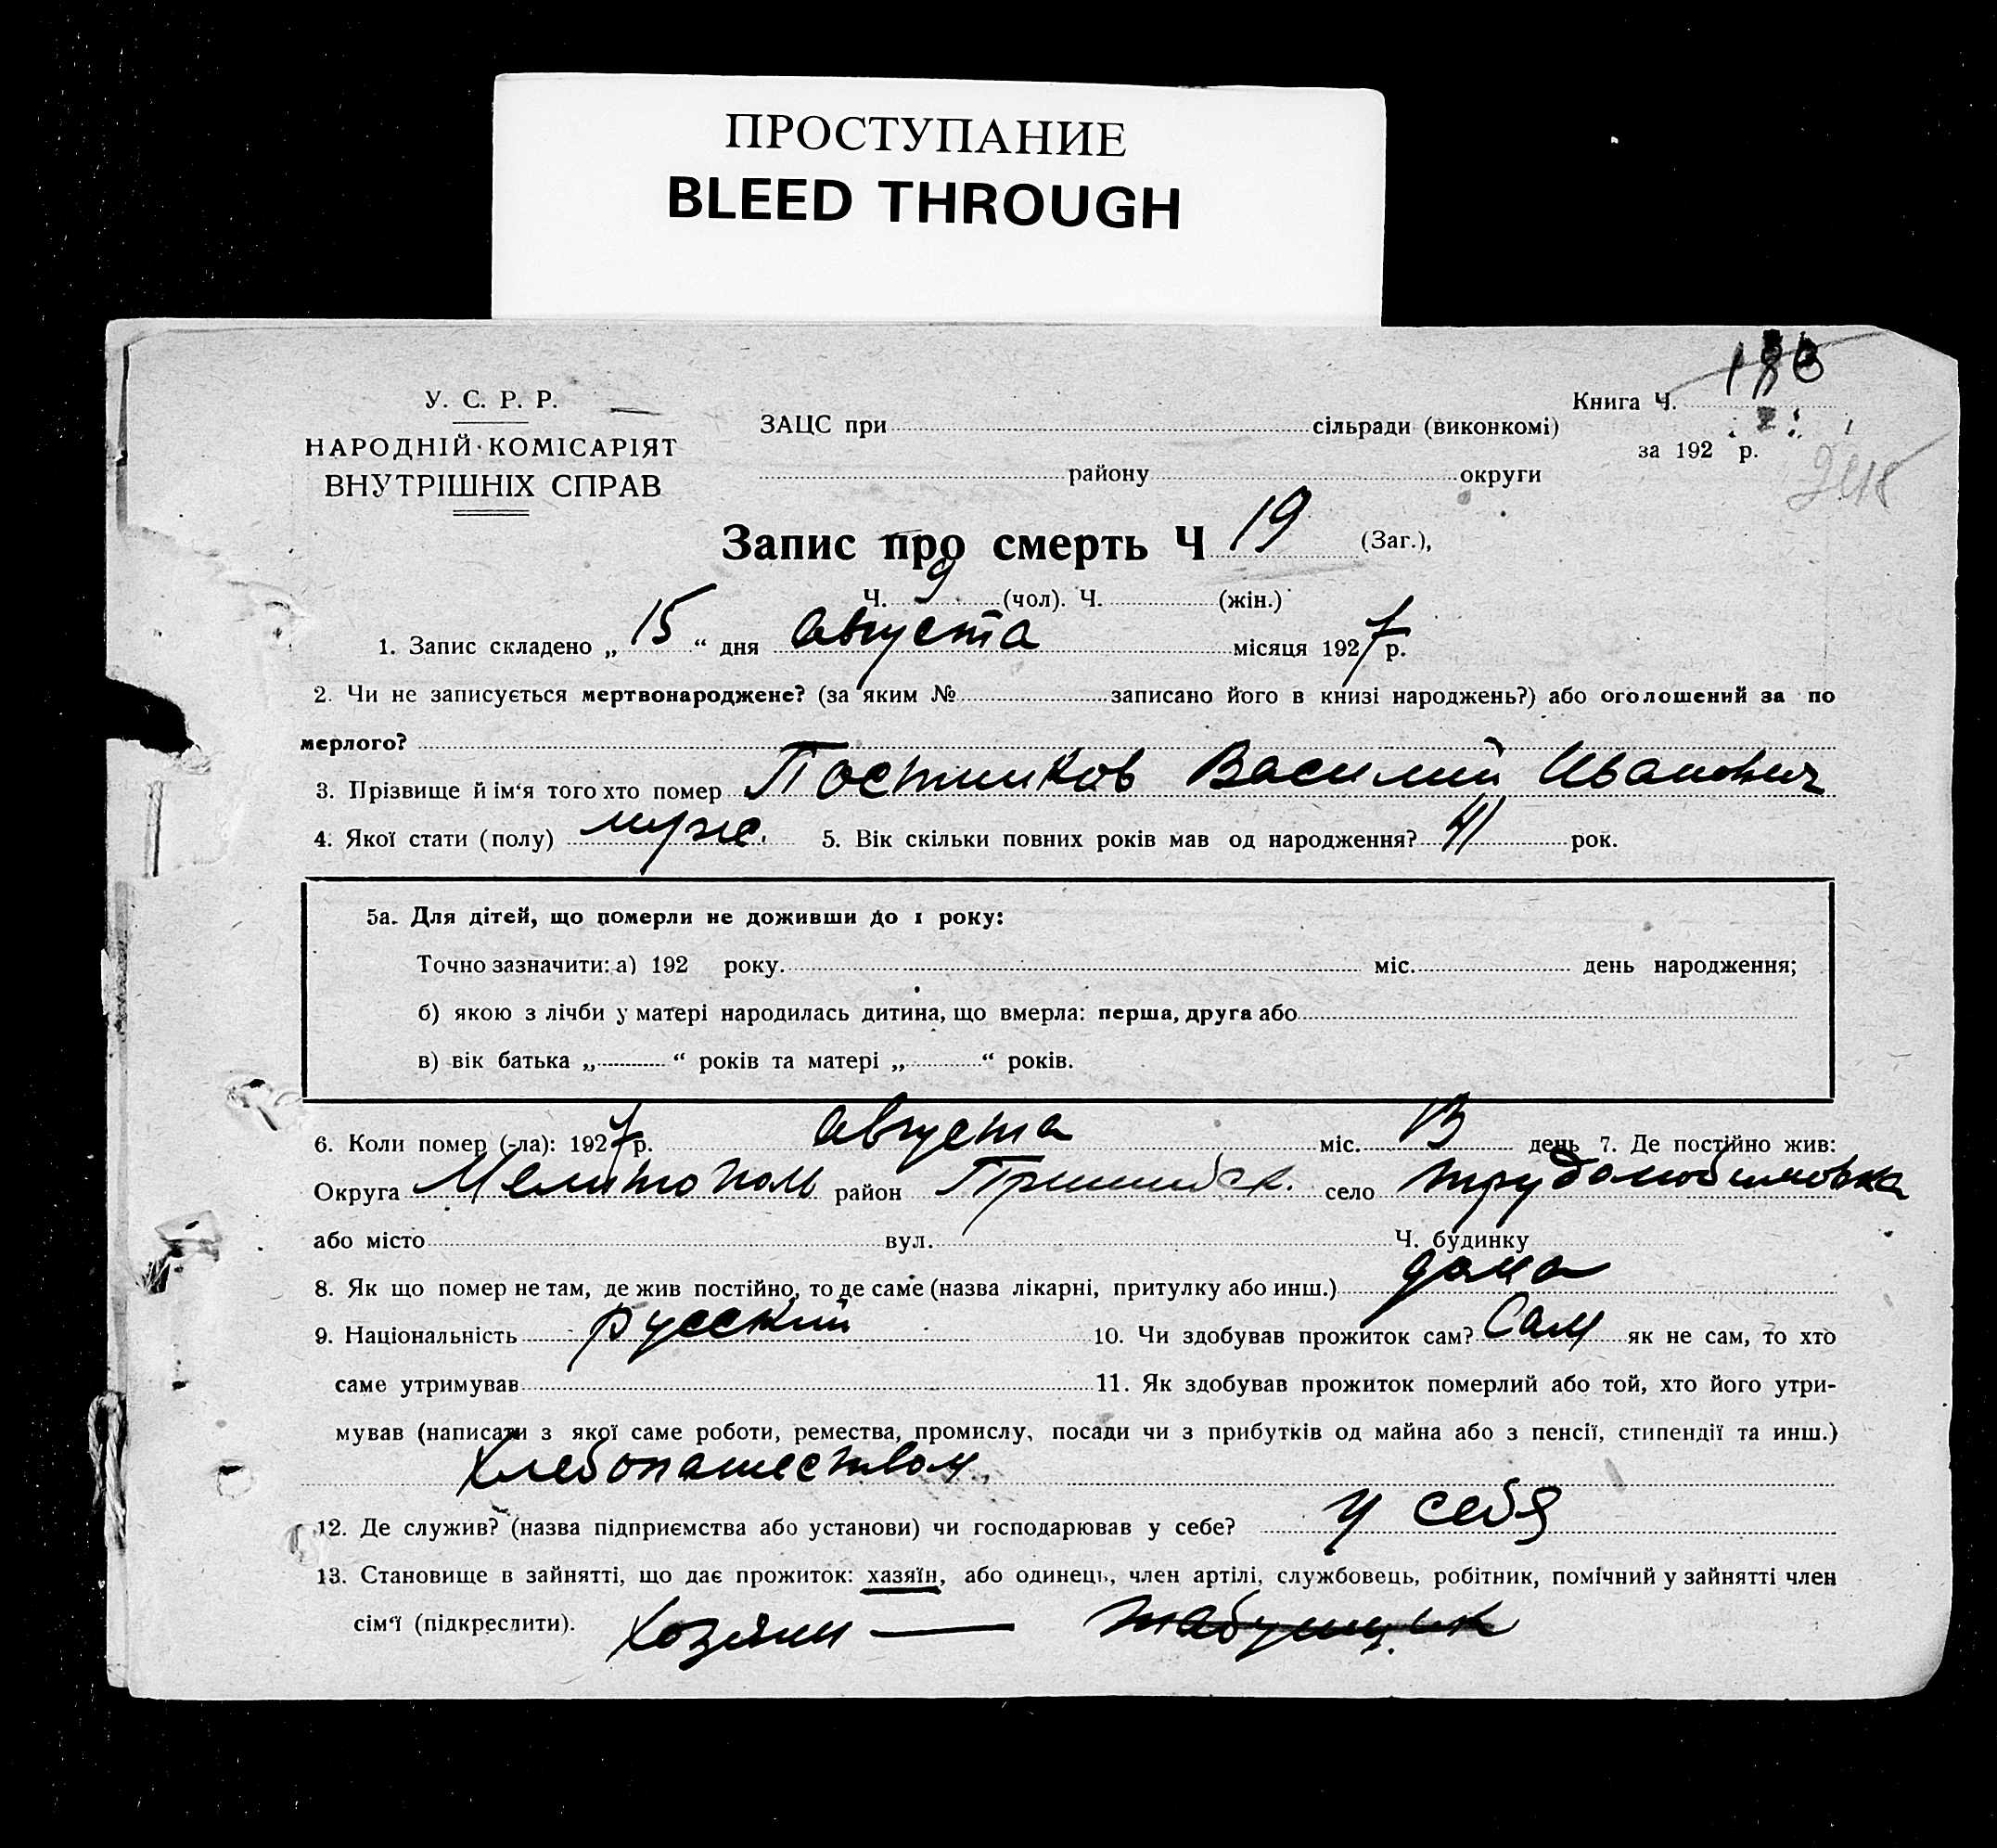 ПРОСТУПАНИЕ
BLEED THROUGH
У. С. Р. Р.
НАРОДНІЙ КОМІСАРІЯТ
ВНУТРІШНІХ СПРАВ
ЗАЦС при сільради (виконкомі)
району округи
Книга Ч.
за 192 р.
Запис про смерть Ч 19 (Заг.),
Ч. 9 (чол). Ч. (жін.)
1. Запис складено „ 15 “ дня Августа місяця 1927 р.
2. Чи не записується мертвонароджене? (за яким № записано його в книзі народжень?) або оголошений за по
мерлого?
3. Прізвище й ім‘я того хто помер Постников Василий Иванович
4. Якої стати (полу) муже. 5. Вік скільки повних років мав од народження? 41 рок.
5а. Для дітей, що померли не доживши до 1 року:
Точно зазначити: а) 192 року. міс. день народження;
б) якою з лічби у матері народилась дитина, що вмерла: перша, друга або
в) вік батька „ “ років та матері „ “ років.
6. Коли помер (-ла): 1927 р. Августа міс. 13 день 7. Де постійно жив:
Округа Мелитополь район Пришибск. село Трудолюбимовка
або місто вул. Ч. будинку
8. Як що помер не там, де жив постійно, то де саме (назва лікарні, притулку або инш.) дома
9. Національність русский 10. Чи здобував прожиток сам? Сам як не сам, то хто
саме утримував 11. Як здобував прожиток померлий або той, хто його утри-
мував (написати з якої саме роботи, ремества, промислу, посади чи з прибутків од майна або з пенсії, стипендії та инш.)
Хлебопашеством.
12. Де служив? (назва підприємства або установи) чи господарював у себе? у себя
13. Становище в зайнятті, що дає прожиток: хазяїн, або одинець, член артілі, службовець, робітник, помічний у зайнятті член
сім‘ї (підкреслити). Хозяин —